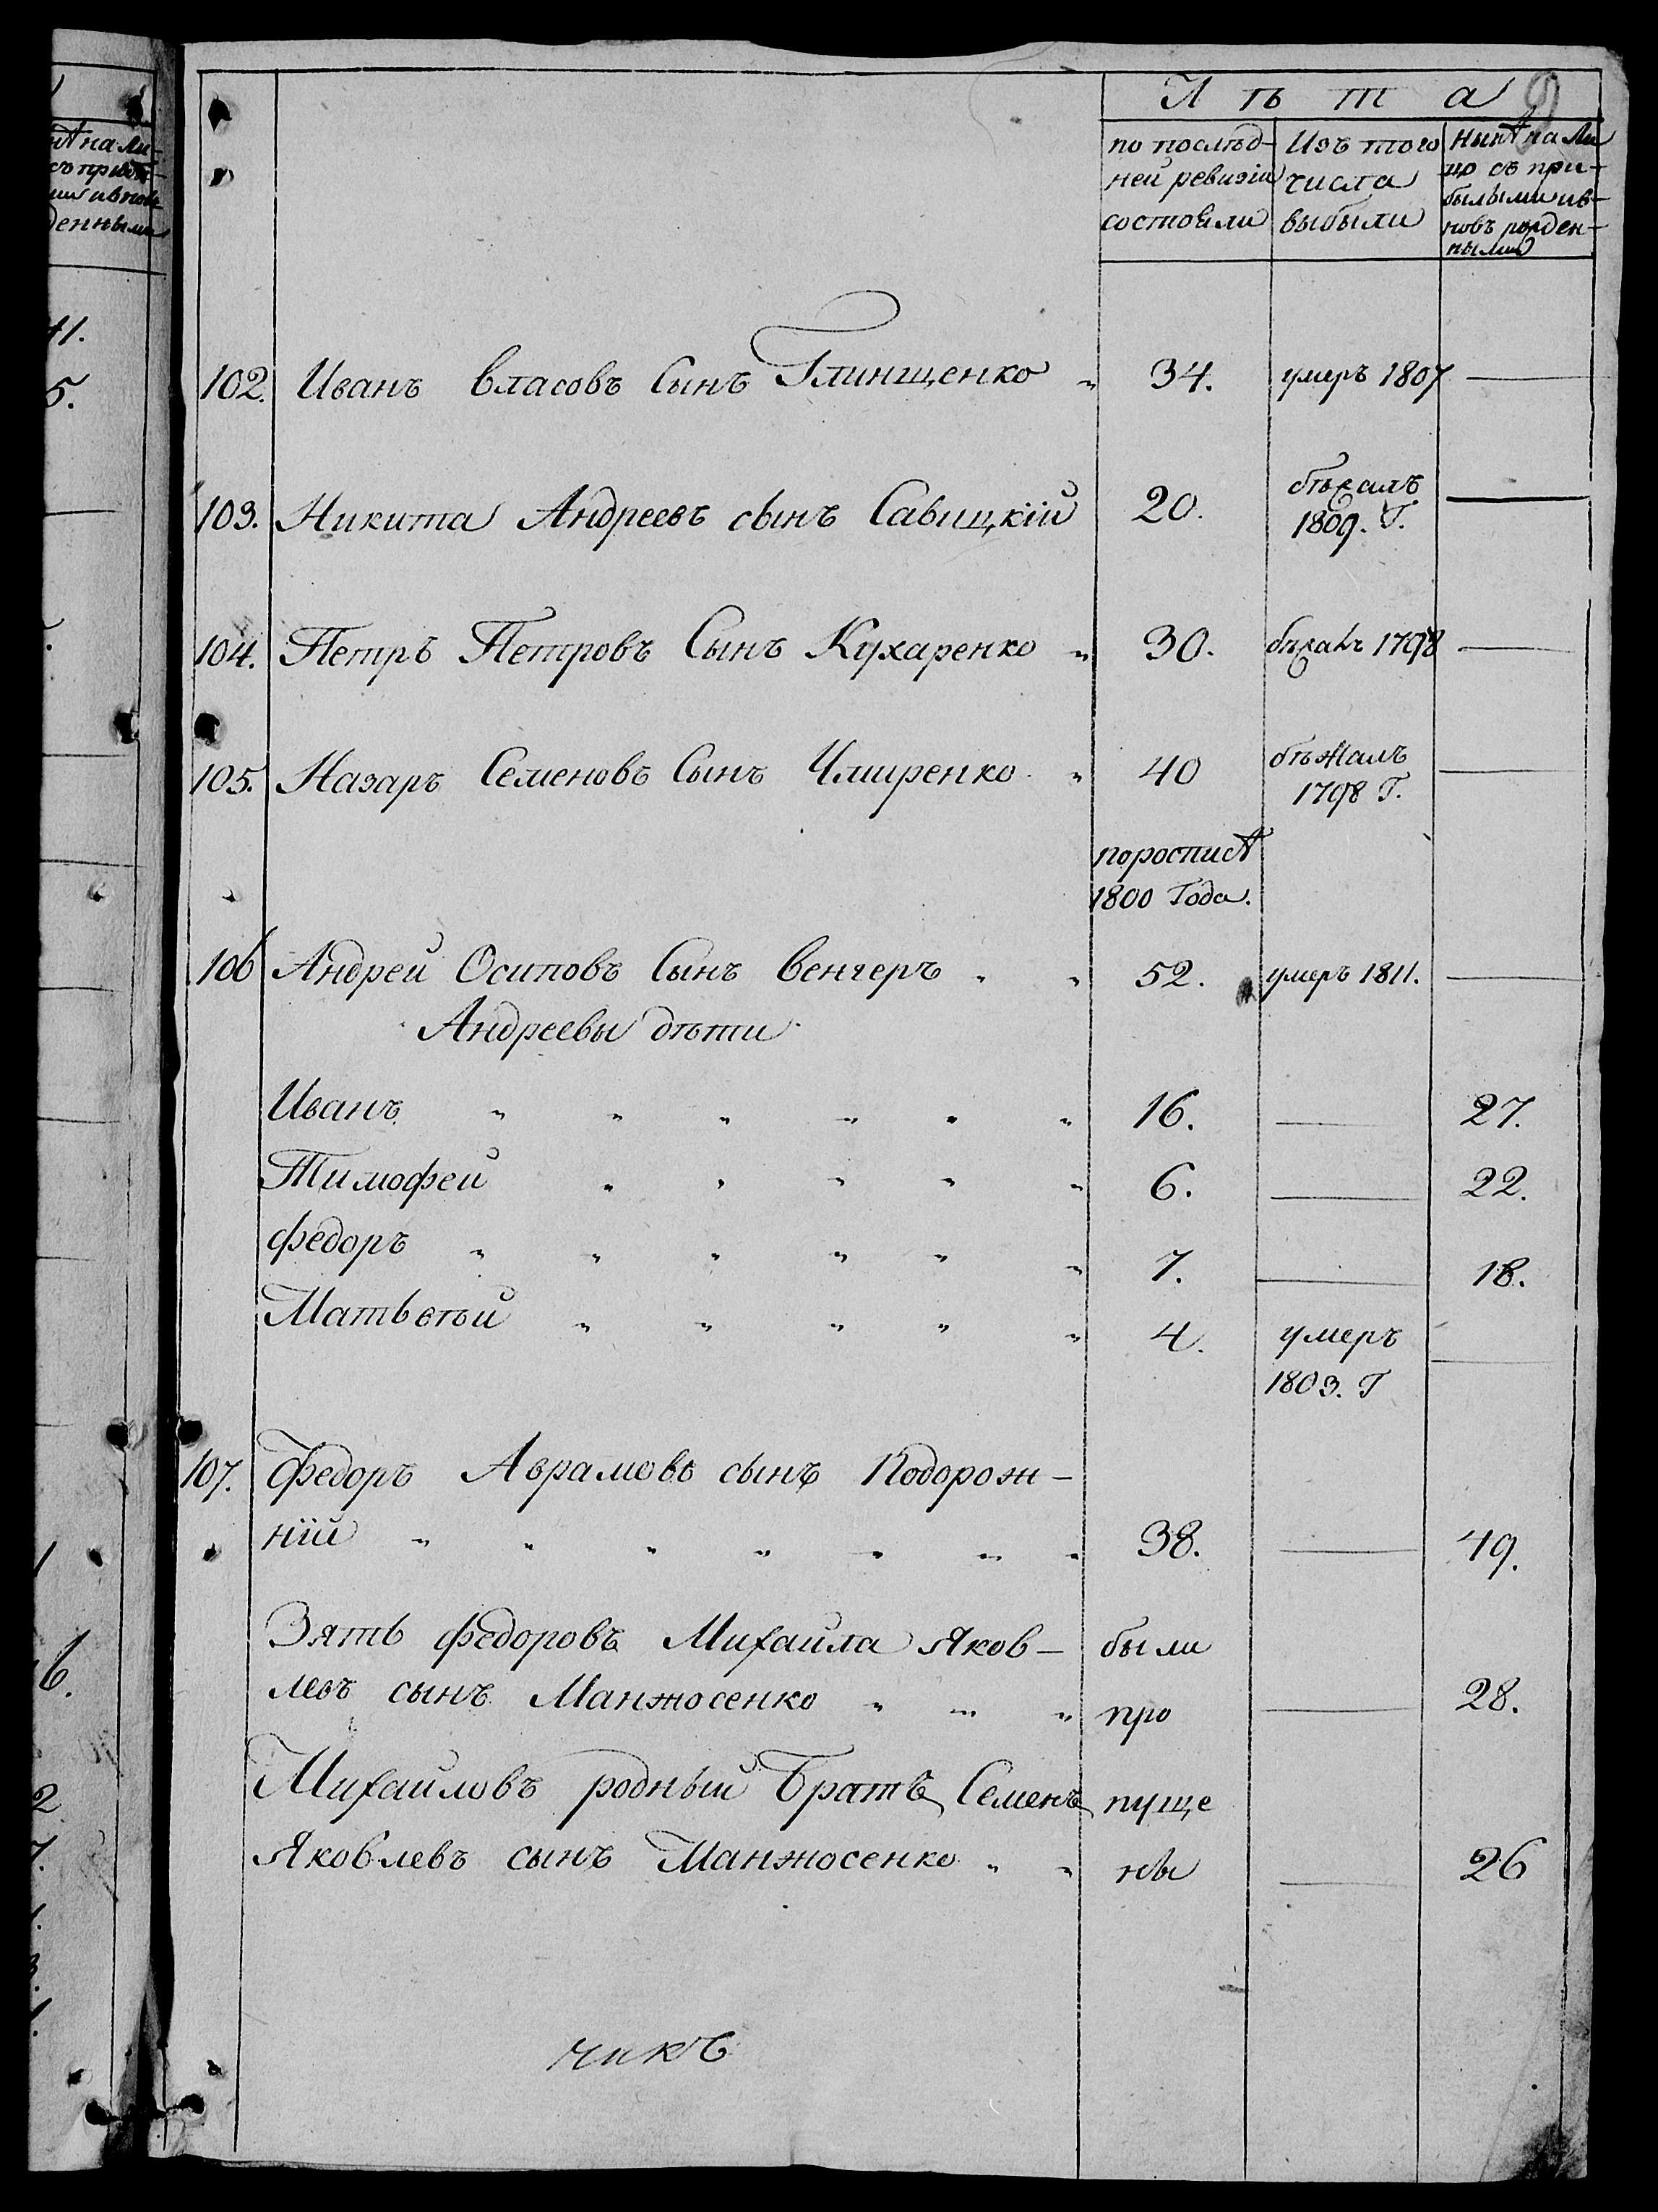 Лѣта
по послѣд-
ней ревизіи
состояли
Изъ того
числа
выбыли
Нынѣ на ли
цо съ при-
былыми ив-
новь рожден-
ными
102. Иванъ Власовъ Сынъ Глинщенко „ 34. умеръ 1807 —
103. Никита Андреевъ сынъ Савицкій 20. бѣжалъ 1809. Г. —
104. Петръ Петровъ Сынъ Кухаренко „ 30. бѣжалъ 1798 —
105. Назаръ Семеновъ Сынъ Чмиренко „ 40 бѣжалъ 1798 Г. —
поросписѣ
1800 Года.
106 Андрей Осиповъ Сынъ Венгеръ „ „ 52. умеръ 1811. —
Андреевы дѣти
Иванъ „ „ „ „ „ „ 16. — 27.
Тимофей „ „ „ „ „ 6. — 22.
Федоръ „ „ „ „ „ „ 7. — 18.
Матьвѣй „ „ „ „ „ 4. умеръ —
1803. Г
107. Федоръ Аврамовъ сынъ Подорож-
ній „ „ „ „ „ „ „ 38. — 49.
Зять Федоровъ Михаила Яков- были
левъ сынъ Манжосенко „ „ „ про — 28.
Михаиловъ родный Братъ Семенъ пуще
Яковлевъ сынъ Манжосенко „ „ ны — 26
чикъ